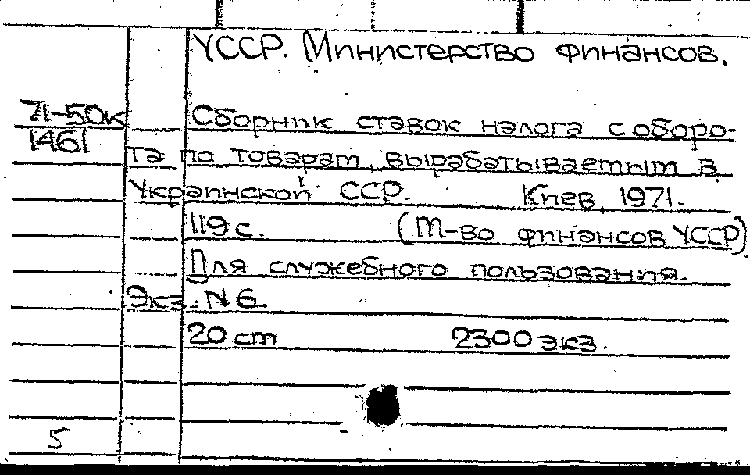 УССР. Министерство финансов.
71-50к
1461
Сборник ставок налога с оборо-
та по товарам, вырабатываемым в
Украинской ССР. Киев, 1971.
119 с. (М-во финансов УССР)
Для служебного пользования.
Экз. N 6.
20 см 2300 экз.
5